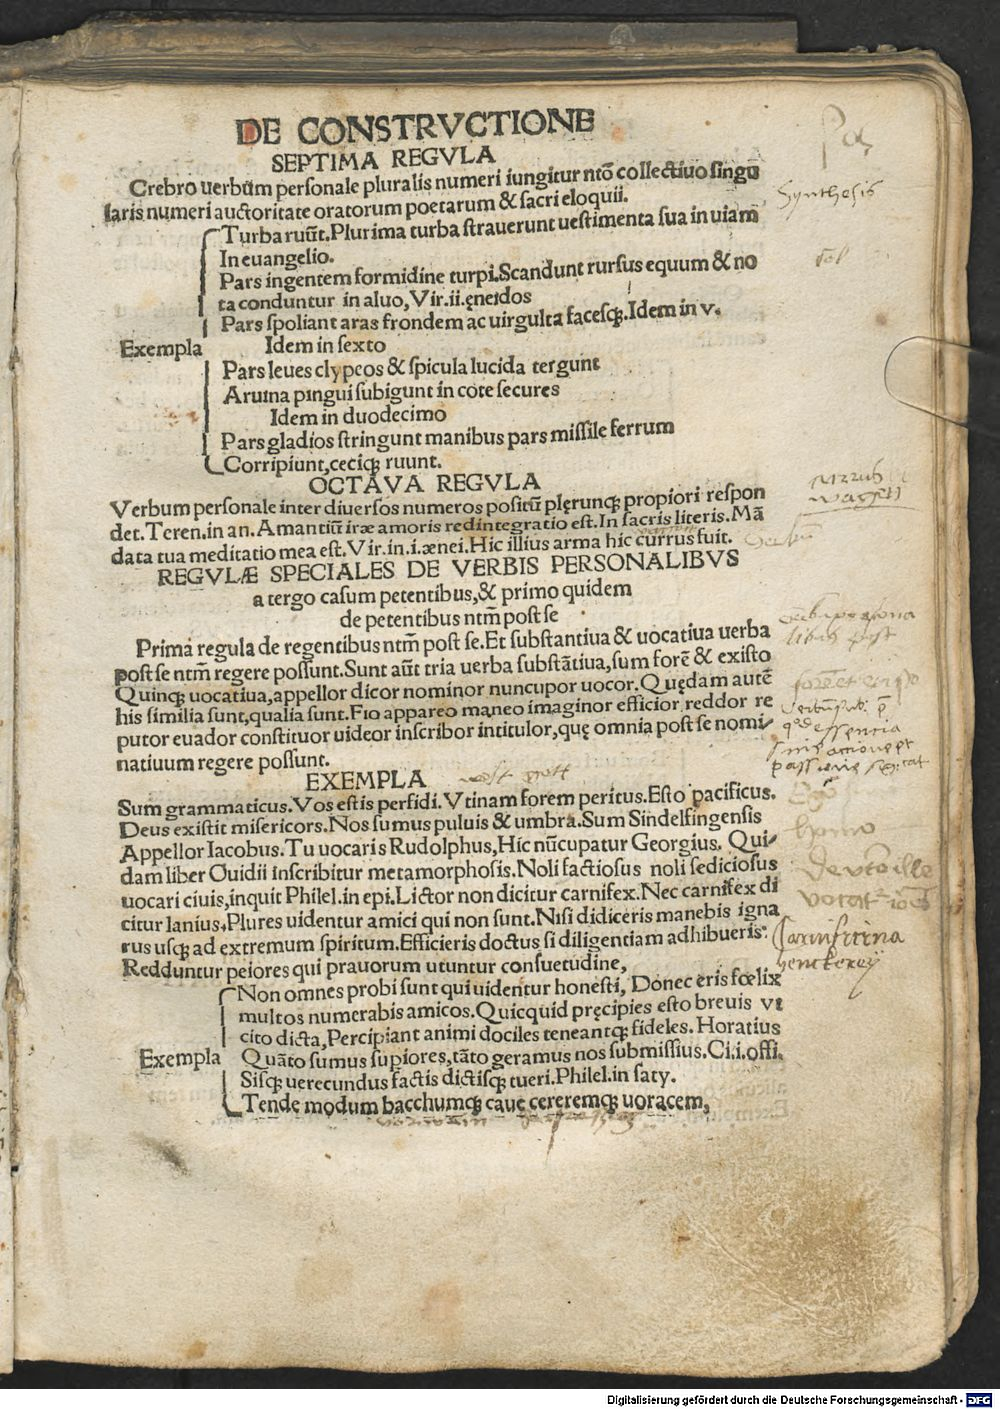 DE CONSTRVCTIONE
SEPTIMA REGVLA
Crebro uerbum personale pluralis numeri iungitur ntō collectiuo singu
laris numeri auctoritate oratorum poetarum & sacri eloquii.
Synthesis
Turba ruūt. Plurima turba strauerunt uestimenta sua in uiam
In euangelio.
Pars ingentem formidine turpi. Scandunt rursus equum & no
ta conduntur in aluo, Vir. ii. ęneidos
Pars spoliant aras frondem ac uirgulta facesq;. Idem in v.
Exempla
Idem in sexto
Pars leues clypeos & spicula lucida tergunt
Aruina pingui subigunt in cote secures
Idem in duodecimo
Pars gladios stringunt manibus pars missile ferrum
Corripiunt, cęciq; ruunt.
OCTAVA REGVLA
Verbum personale inter diuersos numeros positū plęrunq; propiori respon
det. Teren. in an. Amantiū iræ amoris redintegratio est. In sacris literis. Mā
data tua meditatio mea est. Vir. in. i. ænei. Hic illius arma hic currus fuit.
wagen
REGVLÆ SPECIALES DE VERBIS PERSONALIBVS
a tergo casum petentibus, & primo quidem
de petentibus ntm̄ post se
Prima regula de regentibus ntm̄ post se. Et substantiua & uocatiua uerba
post se ntm̄ regere possunt. Sunt aūt tria uerba substātiua, sum forē & existo
Quinq; uocatiua, appellor dicor nominor nuncupor uocor. Quędam autē
his similia sunt, qualia sunt. Fio appareo maneo imaginor efficior reddor re
putor euador constituor uideor inscribor intitulor, quę omnia post se nomi-
natiuum regere possunt.
essentia
EXEMPLA
Sum grammaticus. Vos estis perfidi. Vtinam forem peritus. Esto pacificus.
Deus existit misericors. Nos sumus puluis & umbra. Sum Sindelfingensis
Appellor Iacobus. Tu uocaris Rudolphus, Hic nūcupatur Georgius. Qui-
dam liber Ouidii inscribitur metamorphosis. Noli factiosus noli sediciosus
uocari ciuis, inquit Philel. in epi. Lictor non dicitur carnifex. Nec carnifex di
citur lanius. Plures uidentur amici qui non sunt. Nisi didiceris manebis igna
rus usq; ad extremum spiritum. Efficieris doctus si diligentiam adhibueris.
Redduntur peiores qui prauorum utuntur consuetudine,
homo
henckerey
Non omnes probi sunt qui uidentur honesti, Donec eris fœlix
multos numerabis amicos. Quicquid pręcipies esto breuis vt
cito dicta, Percipiant animi dociles teneantq; fideles. Horatius
Exempla
Quāto sumus supiores, tāto geramus nos submissius. Ci. i. offi.
Sisq; uerecundus factis dictisq; tueri. Philel. in saty.
Tende modum bacchumq; caue cereremq; uoracem,
Digitalisierung gefördert durch die Deutsche Forschungsgemeinschaft - DFG